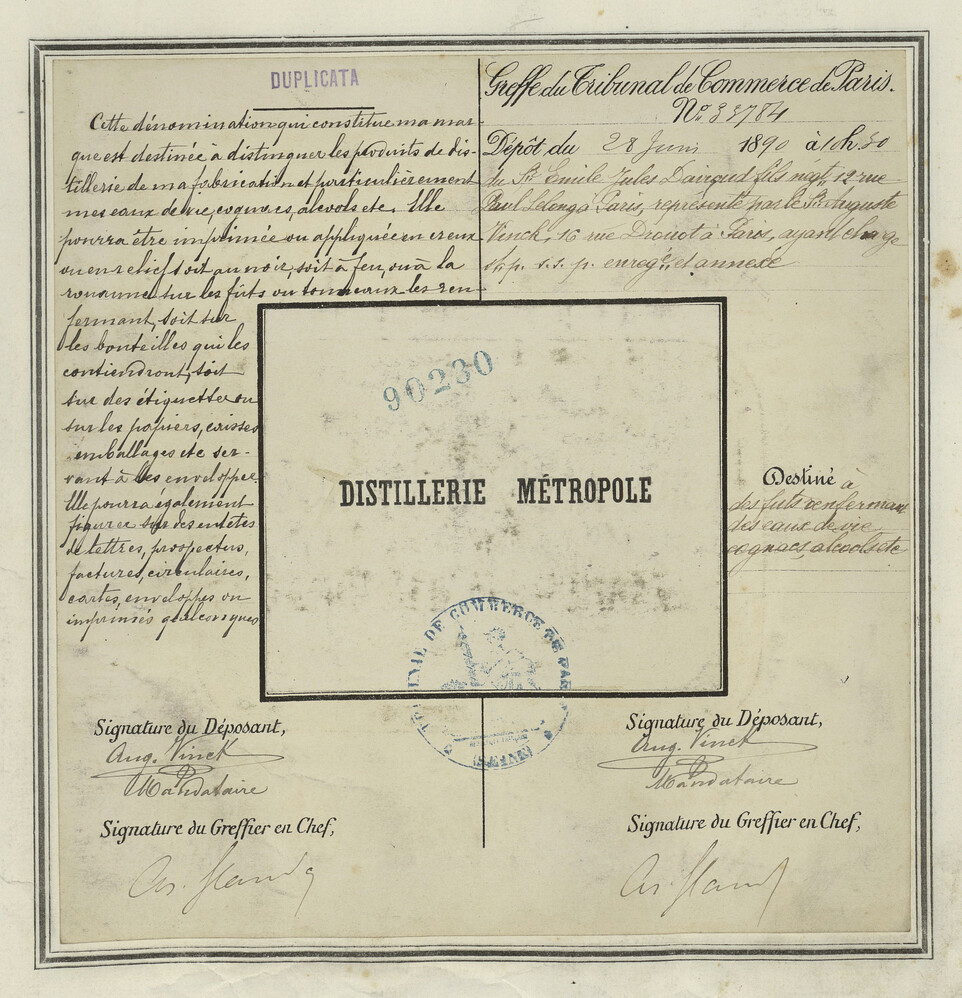 DUPLICATA
Cette dénomination qui constitue ma mar-
que est destinée à distinguer les produits de dis-
tillerie de ma fabrication et particulièrement
mes eaux de vie, cognacs, alcools etc. Elle
pourra être imprimée ou appliquée en creux
ou en relief soit au noir, soit à feu, ou à la
rouanne sur les fûts ou tonneaux les ren-
fermant, soit sur
les bouteilles qui les
contiendront, soit
sur des étiquettes ou
sur les papiers, caisses
emballages etc ser-
vant à les envelopper.
Elle pourra également
figurer sur des entêtes
de lettres, prospectus,
factures, circulaires,
cartes, enveloppes ou
imprimés quelconques
Signature du Déposant,
Aug. Vinck
Mandataire
Signature du Greffier en Chef,
Greffe du Tribunal de Commerce de Paris.
No. 33784
Dépôt du 28 Juin 1890 à 10h.30
du Sr. Emile Jules Dairaud fils négt. 12 rue
Paul Lelong à Paris, représenté par le Sr. Auguste
Vinck, 16 rue Drouot à Paris, ayant charge
s. p. enregé. et annexé
90230
DISTILLERIE MÉTROPOLE
Destiné à
des futs renfermant
des eaux de vie
cognacs alcools etc
TRIBUNAL DE COMMERCE DE PARIS
Signature du Déposant,
Aug. Vinck
Mandataire
Signature du Greffier en Chef,